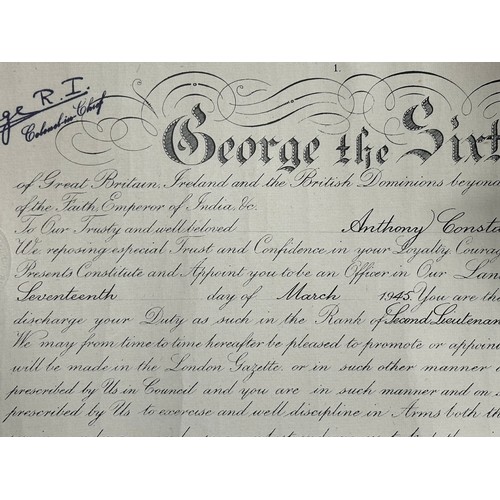 1.
ge R. I.
Colonel-in-Chief
George the Sixt
of Great Britain, Ireland and the British Dominions beyon
of the Faith, Emperor of India, &c.
To Our Trusty and well beloved Anthony Consta
We reposing especial Trust and Confidence in your Loyalty, Courag
Presents Constitute and Appoint you to be an Officer in Our Lan
Seventeenth day of March 1945. You are the
discharge your Duty as such in the Rank of Second Lieutenan
We may from time to time hereafter be pleased to promote or appoin
will be made in the London Gazette, or in such other manner a
prescribed by Us in Council and you are in such manner and on s
prescribed by Us to exercise and well discipline in Arms both th